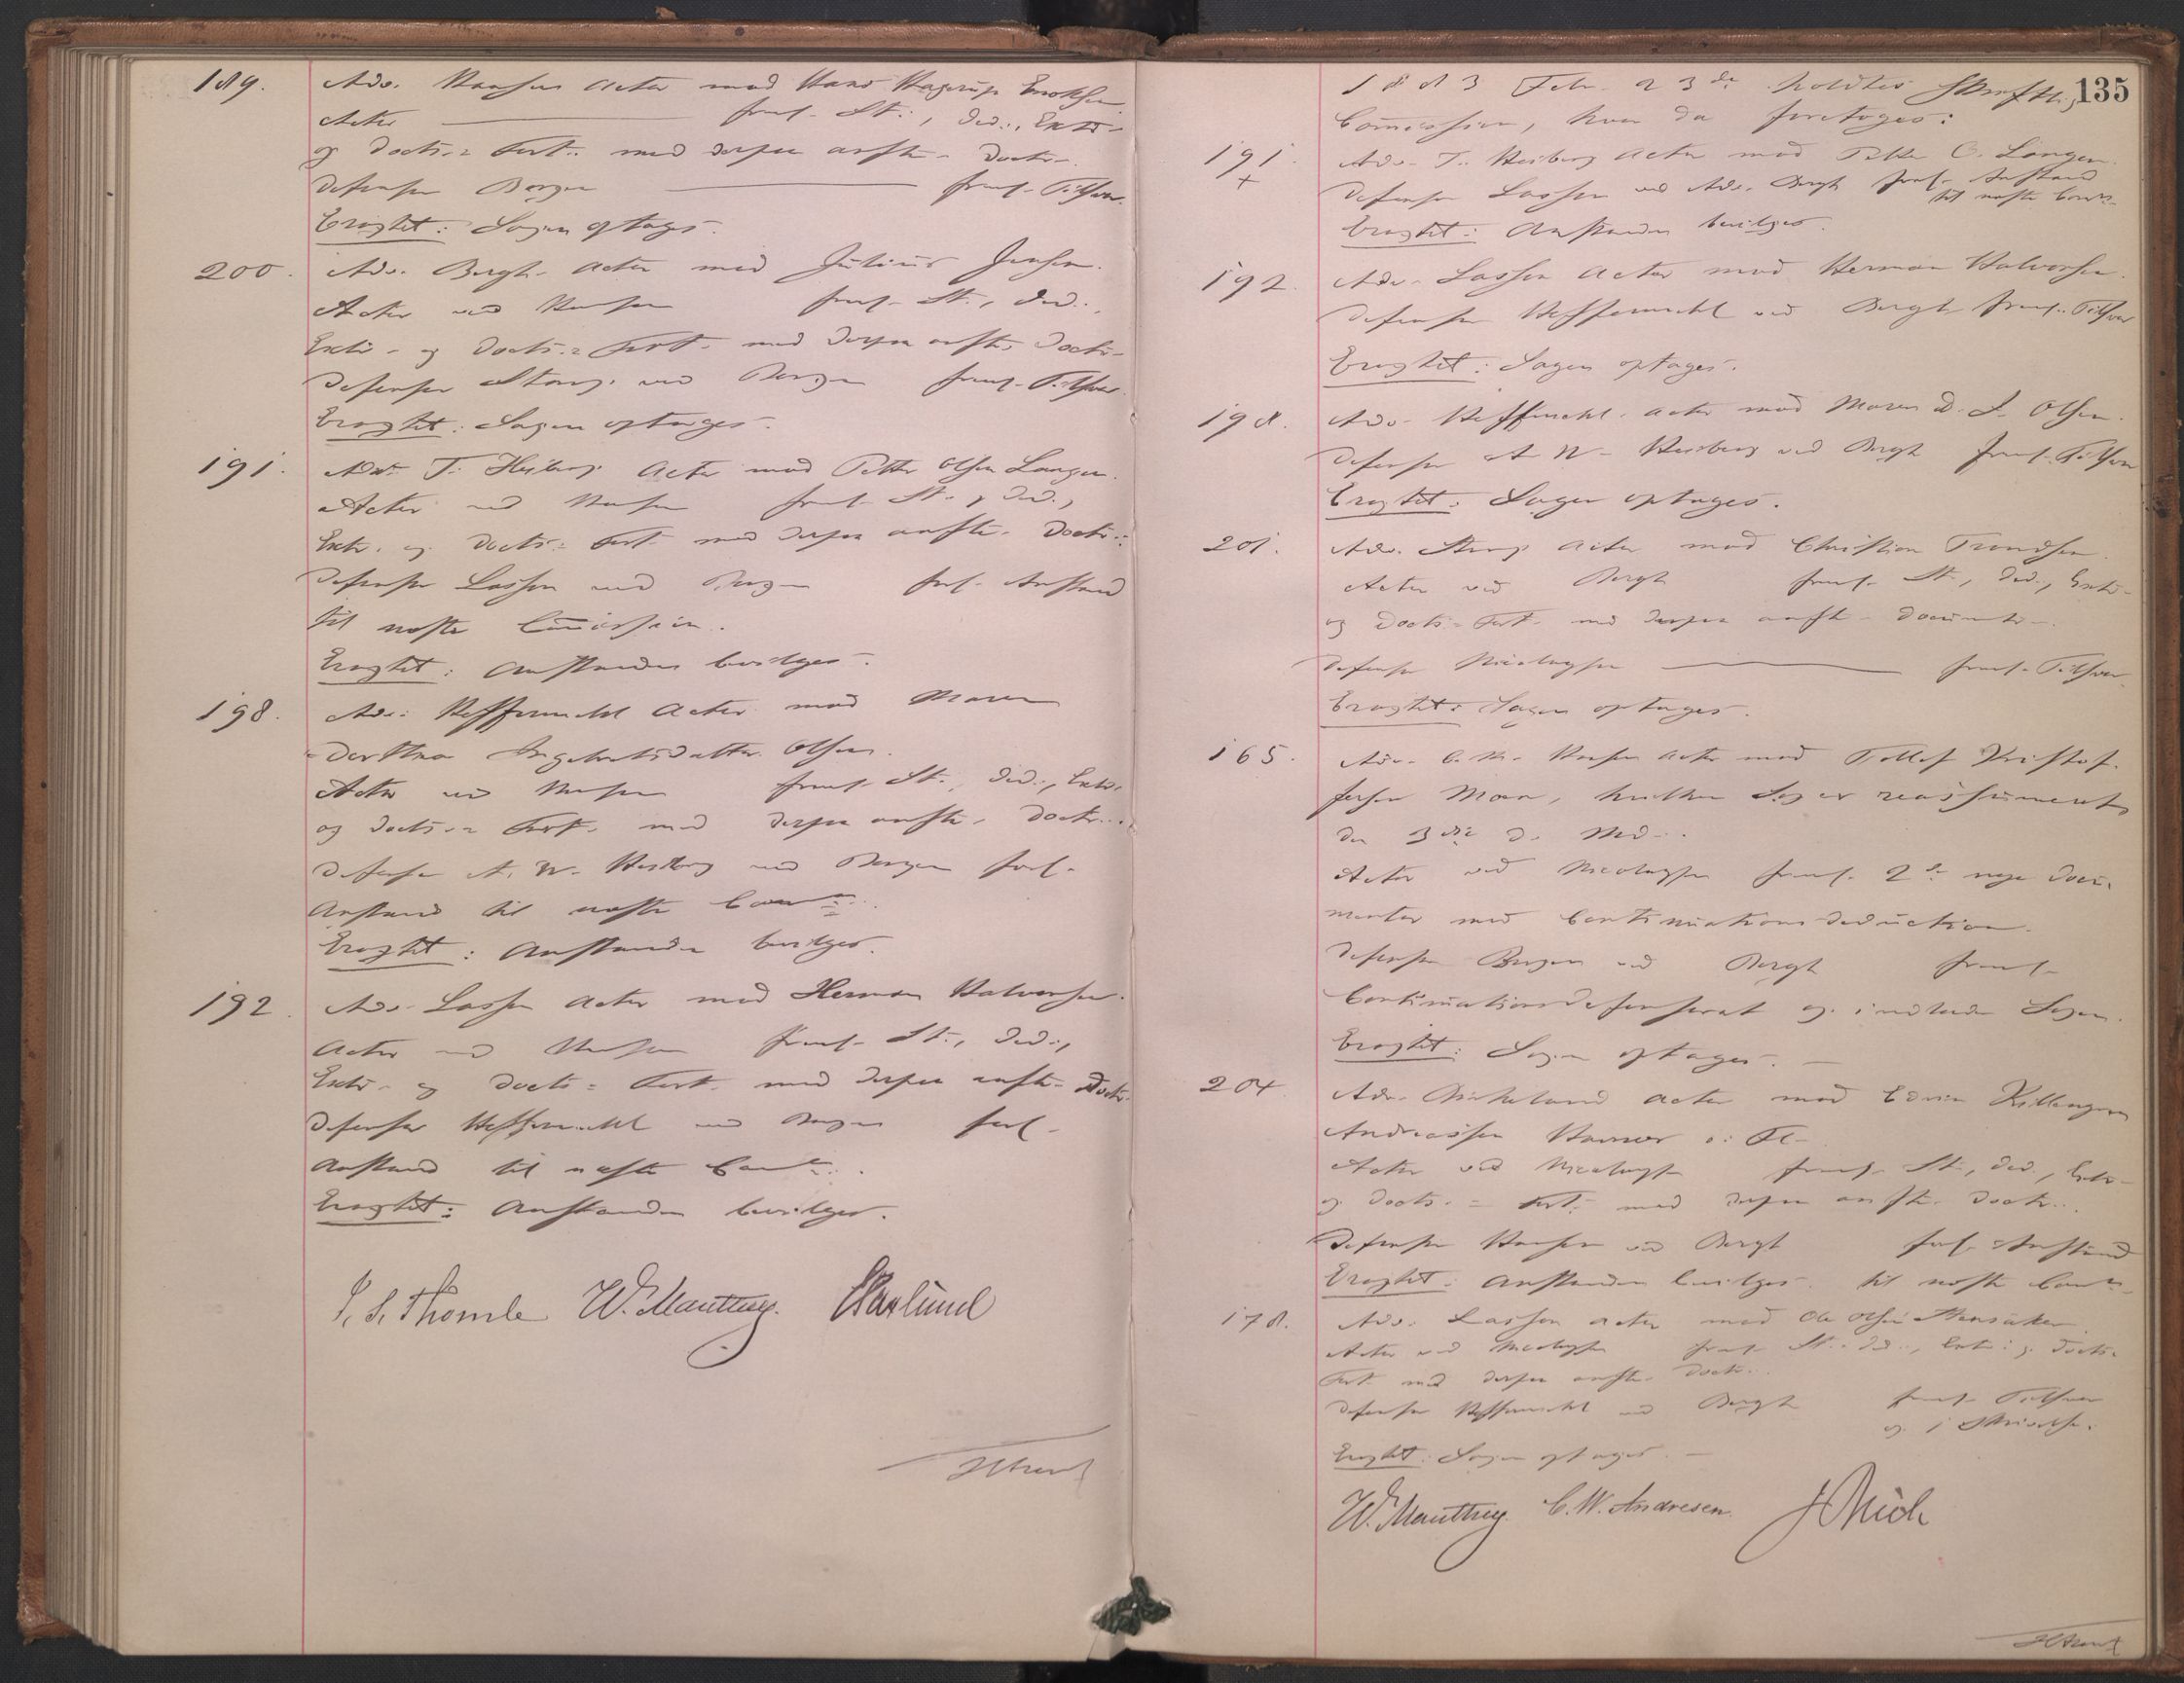 189.
Adv. Hansen Actor mod Hans Hagerup Enoksen
Actor frml. St., Ded., Extr.
og Docts.= Fort. med derpaa anfte. Doctr.
Defensor Bergen frml. Tilsvar.
Eragtet: Sagen optages.
200.
Adv. Bergh Actor mod Julius Jensen.
Actor ved Hansen frml. St., Ded.,
Extr. og Docts.= Fort. med derpaa anfte. Doctr.
Defensor Stang ved Bergen frml. Tilsvar.
Eragtet: Sagen optages.
191.
Adv. T. Heiberg Actor mod Petter Olsen Langen.
Actor ved Hansen frml. St., Ded.,
Extr. og Docts.= Fort. med derpaa anfte. Doctr.
Defensor Lassen ved Bergen forl. Anstand
til næste Commission.
Eragtet: Anstanden bevilges.
198.
Adv. Heffermehl Actor mod Maren
Dorthea Ingebretsdatter Olsen.
Actor ved Hansen frml. St., Ded., Extr.
og Docts.= Fort. med derpaa anfte. Doctr.
Defensor A. W. Heiberg ved Bergen forl.
Anstand til næste Comn.
Eragtet: Anstanden bevilges.
192.
Adv. Lassen Actor mod Herman Halvorsen.
Actor ved Hansen frml. St., Ded.,
Extr. og Docts.= Fort. med derpaa anfte. Doctr.
Defensor Heffermehl ved Bergen forl.
Anstand til næste Comn.
Eragtet: Anstanden bevilges.
J. S. Thomle W. Manthey
135
1883 Febr. 23de holdtes Skriftlig
Commission, hvor da foretoges:
191.
+
Adv. T. Heiberg Actor mod Petter O. Langen.
Defensor Lassen ved Adv. Bergh forl. Anstand
til næste Comn.
Eragtet: Anstanden bevilges.
192.
Adv. Lassen Actor mod Herman Halvorsen.
Defensor Heffermehl ved Bergh frml. Tilsvar
Eragtet: Sagen optages.
198.
Adv. Heffermehl Actor mod Maren D. I. Olsen.
Defensor A. W. Heiberg ved Bergh frml. Tilsvar
Eragtet: Sagen optages.
201.
Adv. Stang Actor mod Christian Trondsen.
Actor ved Bergh frml. St., Ded., Extr.
og Docts.= Fort. med derpaa anfte. Documenter.
Defensor Nicolaysen frml. Tilsvar.
Eragtet: Sagen optages.
165.
Adv. C. M. Hansen Actor mod Tollef Kristof-
fersen Moen, hvilken Sag er reassumeret
den 3die d. Md.
Actor ved Nicolaysen frml. 2de nye Docu-
menter med Continuationsdeduction.
Defensor Bergen ved Bergh frml.
Continuationsdefensorat og indlader Sagen.
Eragtet: Sagen optages.
204
Adv. Birkeland Actor mod Edvin Killengreen
Andreassen Hammer o: Fl.
Actor ved Nicolaysen frml. St., Ded., Extr.
og Docts.= Fort. med derpaa anfte. Doctr.
Defensor Hansen ved Bergh forl. Anstand
Eragtet: Anstanden bevilges. til næste Comn.
178.
Adv. Lassen Actor mod Ole Olsen Stensaker.
Actor ved Nicolaysen frml. St., Ded., Extr. og Docts.
Fort. med derpaa anfte. Doctr.
Defensor Heffermehl ved Bergh frml. Tilsvar
og 1 Skrivelse.
Eragtet: Sagen optages.
W. Manthey. C. W. Andresen.